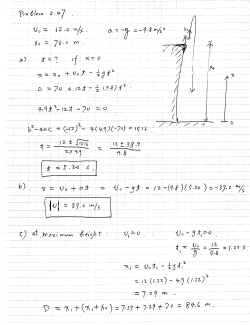 Problem 2.47.
v₀ = 12.0 m/s.   a = -g = -9.8 m/s²
x₀ = 70.0 m
a) t = ?  if x = 0
x = x₀ + v₀t - ½gt²
0 = 70 + 12t - ½(9.8)t²
4.9t² - 12t - 70 = 0
b² - 4ac = (-12)² - 4(4.9)(-70) = 1516
t = (12 ± √1516)/(2×4.9) = (12 ± 38.9)/9.8
t = 5.20 s.
b) v = v₀ + at = v₀ - gt = 12 - (9.8)(5.20) = -39.0 m/s
|v| = 39.0 m/s
c) at maximum height   v₁ = 0   v₀ - gt₁ = 0.
t₁ = v₀/g = 12/9.8 = 1.22 s
x₁ = v₀t₁ - ½gt₁²
= 12(1.22) - 4.9(1.22)²
= 7.29 m.
D = x₁ + (x₁ + x₀) = 7.29 + 7.29 + 70 = 84.6 m.